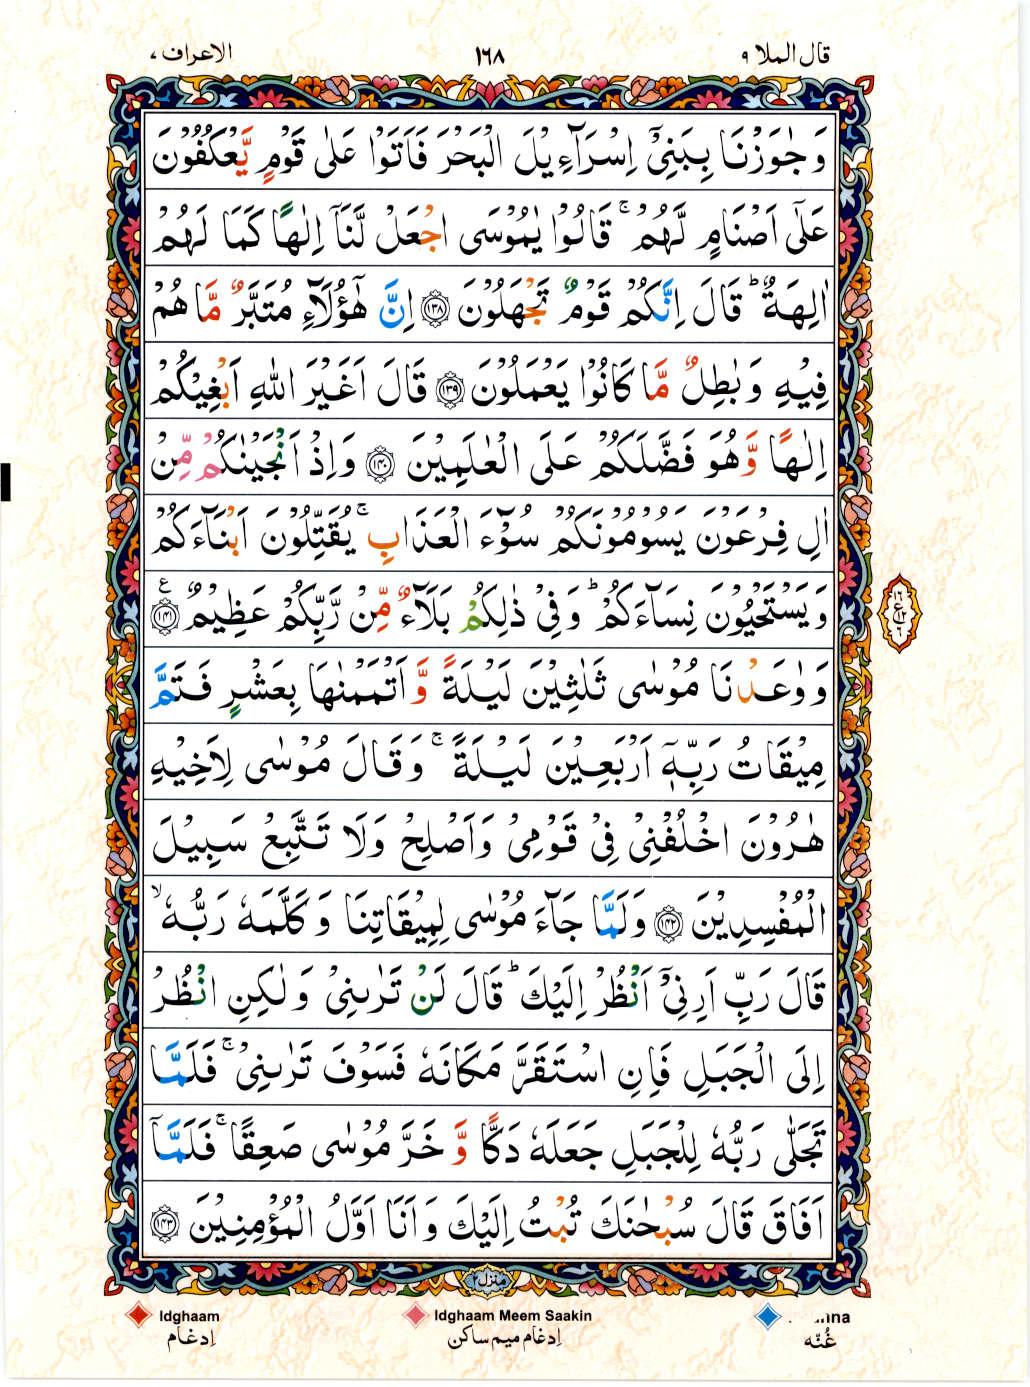 قال الملا ۹
۱۶۸
الاعراف ۷
وَجٰوَزْنَا بِبَنِیْۤ اِسْرَآءِیْلَ الْبَحْرَ فَاَتَوْا عَلٰی قَوْمٍ یَّعْكُفُوْنَ
عَلٰۤی اَصْنَامٍ لَّهُمْ ۚ قَالُوْا یٰمُوْسَی اجْعَلْ لَّنَاۤ اِلٰهًا كَمَا لَهُمْ
اٰلِهَةٌ ؕ قَالَ اِنَّكُمْ قَوْمٌ تَجْهَلُوْنَ ﴿۱۳۸﴾ اِنَّ هٰۤؤُلَآءِ مُتَبَّرٌ مَّا هُمْ
فِیْهِ وَ بٰطِلٌ مَّا كَانُوْا یَعْمَلُوْنَ ﴿۱۳۹﴾ قَالَ اَغَیْرَ اللّٰهِ اَبْغِیْكُمْ
اِلٰهًا وَّ هُوَ فَضَّلَكُمْ عَلَی الْعٰلَمِیْنَ ﴿۱۴۰﴾ وَ اِذْ اَنْجَیْنٰكُمْ مِّنْ
اٰلِ فِرْعَوْنَ یَسُوْمُوْنَكُمْ سُوْٓءَ الْعَذَابِ ۚ یُقَتِّلُوْنَ اَبْنَآءَكُمْ
وَ یَسْتَحْیُوْنَ نِسَآءَكُمْ ؕ وَ فِیْ ذٰلِكُمْ بَلَآءٌ مِّنْ رَّبِّكُمْ عَظِیْمٌ ﴿۱۴۱﴾ ع
وَ وٰعَدْنَا مُوْسٰی ثَلٰثِیْنَ لَیْلَةً وَّ اَتْمَمْنٰهَا بِعَشْرٍ فَتَمَّ
مِیْقَاتُ رَبِّهٖۤ اَرْبَعِیْنَ لَیْلَةً ۚ وَ قَالَ مُوْسٰی لِاَخِیْهِ
هٰرُوْنَ اخْلُفْنِیْ فِیْ قَوْمِیْ وَ اَصْلِحْ وَ لَا تَتَّبِعْ سَبِیْلَ
الْمُفْسِدِیْنَ ﴿۱۴۲﴾ وَ لَمَّا جَآءَ مُوْسٰی لِمِیْقَاتِنَا وَ كَلَّمَهٗ رَبُّهٗ ۙ
قَالَ رَبِّ اَرِنِیْۤ اَنْظُرْ اِلَیْكَ ؕ قَالَ لَنْ تَرٰىنِیْ وَ لٰكِنِ انْظُرْ
اِلَی الْجَبَلِ فَاِنِ اسْتَقَرَّ مَكَانَهٗ فَسَوْفَ تَرٰىنِیْ ۚ فَلَمَّا
تَجَلّٰی رَبُّهٗ لِلْجَبَلِ جَعَلَهٗ دَكًّا وَّ خَرَّ مُوْسٰی صَعِقًا ۚ فَلَمَّاۤ
اَفَاقَ قَالَ سُبْحٰنَكَ تُبْتُ اِلَیْكَ وَ اَنَا اَوَّلُ الْمُؤْمِنِیْنَ ﴿۱۴۳﴾
منزل ۲
Idghaam
اِدغام
Idghaam Meem Saakin
اِدغام میم ساکن
غُنّه